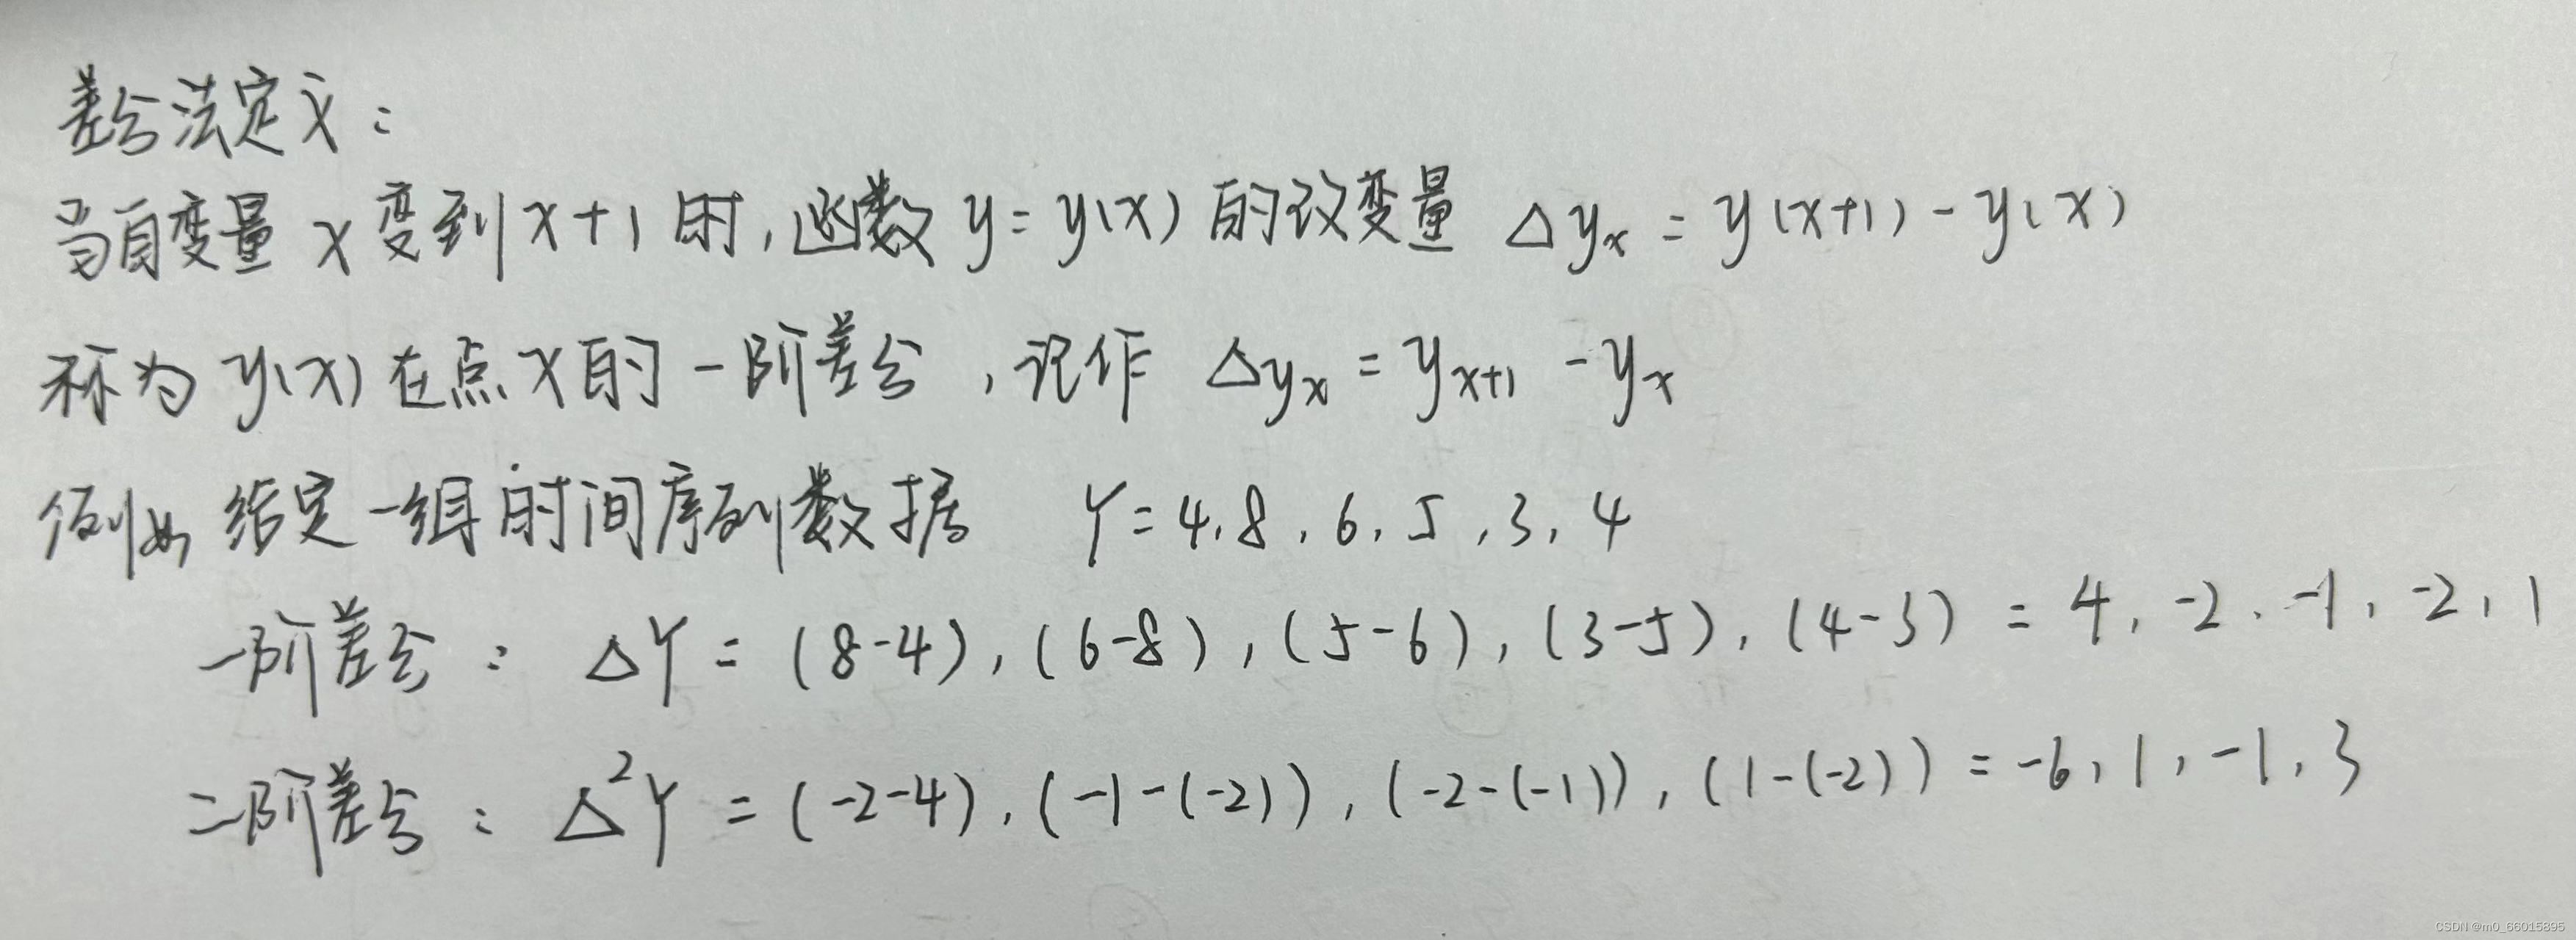 差分法定义:
当自变量 x 变到 x+1 时,函数 y=y(x) 的改变量 Δyₓ = y(x+1) - y(x)
称为 y(x) 在点 x 的一阶差分,记作 Δyₓ = yₓ₊₁ - yₓ
例如 给定一组时间序列数据 Y = 4, 8, 6, 5, 3, 4
一阶差分: ΔY = (8-4), (6-8), (5-6), (3-5), (4-3) = 4, -2, -1, -2, 1
二阶差分: Δ²Y = (-2-4), (-1-(-2)), (-2-(-1)), (1-(-2)) = -6, 1, -1, 3
CSDN @m0_66015895